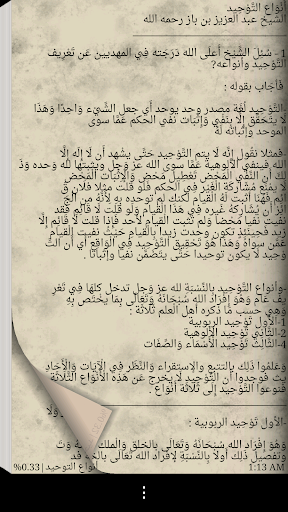 أنواع التَّوْحِيد
الشيخ عبد العزيز بن باز رحمه الله
1 - سُئِلَ الشَّيْخُ أعلى الله دَرَجَته فِي المهديين عَن تَعْرِيف
التَّوْحِيد وأنواعه؟
فَأجَاب بقوله :
-التَّوْحِيد لُغَة مصدر وحد يوحد أَي جعل الشَّيْء وَاحِدًا وَهَذَا
لَا يتَحَقَّق إِلَّا بِنَفْي وَإِثْبَات نفي الحكم عَمَّا سوى
الموحد وإثباته لَهُ
-فمثلا نقُول إِنَّه لَا يتم التَّوْحِيد حَتَّى يشْهد أَن لَا إِلَه إِلَّا
الله فينفي الألوهية عَمَّا سوى الله ويثبتها لله وَحده وَذَ
لِك أَن النَّفْي الْمَحْض تَعْطِيل مَحْض وَالْإِثْبَات الْمَحْض
لَا يمْنَع مُشَاركَة الْغَيْر فِي الحكم فَلَو قلت مثلا فلَان قَ
ائِم فَهُنَا أثبت لَهُ الْقيام لكنك لم توحده بِهِ لِأَنَّهُ من الْجَ
ائِز أَن يُشَارِكهُ غَيره فِي هَذَا الْقيام وَلَو قلت لَا قَائِم فقد
نفيت نفيا مَحْضا وَلم تثبت الْقيام لأحد فَإِذا قلت لَا قَائِم إِلَّا
زيد فَحِينَئِذٍ تكون وحدت زيدا بِالْقيامِ حَيْثُ نفيت الْقيام
عَمَّن سواهُ وَهَذَا هُوَ تَحْقِيق التَّوْحِيد فِي الْوَاقِع أَي أَن التَّ
وْحِيد لَا يكون توحيدا حَتَّى يتَضَمَّن نفيا وإثباتا .
-وأنواع التَّوْحِيد بِالنِّسْبَةِ لله عز وَجل تدخل كلهَا فِي تَعْرِ
يف عَام وَهُوَ إِفْرَاد الله سُبْحَانَهُ وَتَعَالَى بِمَا يخْتَص بِهِ
وَهِي حسب مَا ذكره أهل الْعلم ثَلَاثَة :
1-الأول تَوْحِيد الربوبية
2-الثَّانِي تَوْحِيد الألوهية
3-الثَّالِث تَوْحِيد الْأَسْمَاء وَالصِّفَات
وَعَلمُوا ذَلِك بالتتبع والإستقراء وَالنَّظَر فِي الْآيَات وَالْأَحَادِ
يث فوجدوا أَن التَّوْحِيد لَا يخرج عَن هَذِه الْأَنْوَاع الثَّلَاثَة
فنوعوا التَّوْحِيد إِلَى ثَلَاثَة أَنْوَاع .
-الأول تَوْحِيد الربوبية :
وَهُوَ إِفْرَاد الله سُبْحَانَهُ وَتَعَالَى بالخلق وَالْملك
وَتَفْصِيل ذَلِك أَولا بِالنِّسْبَةِ لإفراد الله تَعَالَى بالخلق
%0.33 | أنواع التوحيد 1:13 AM